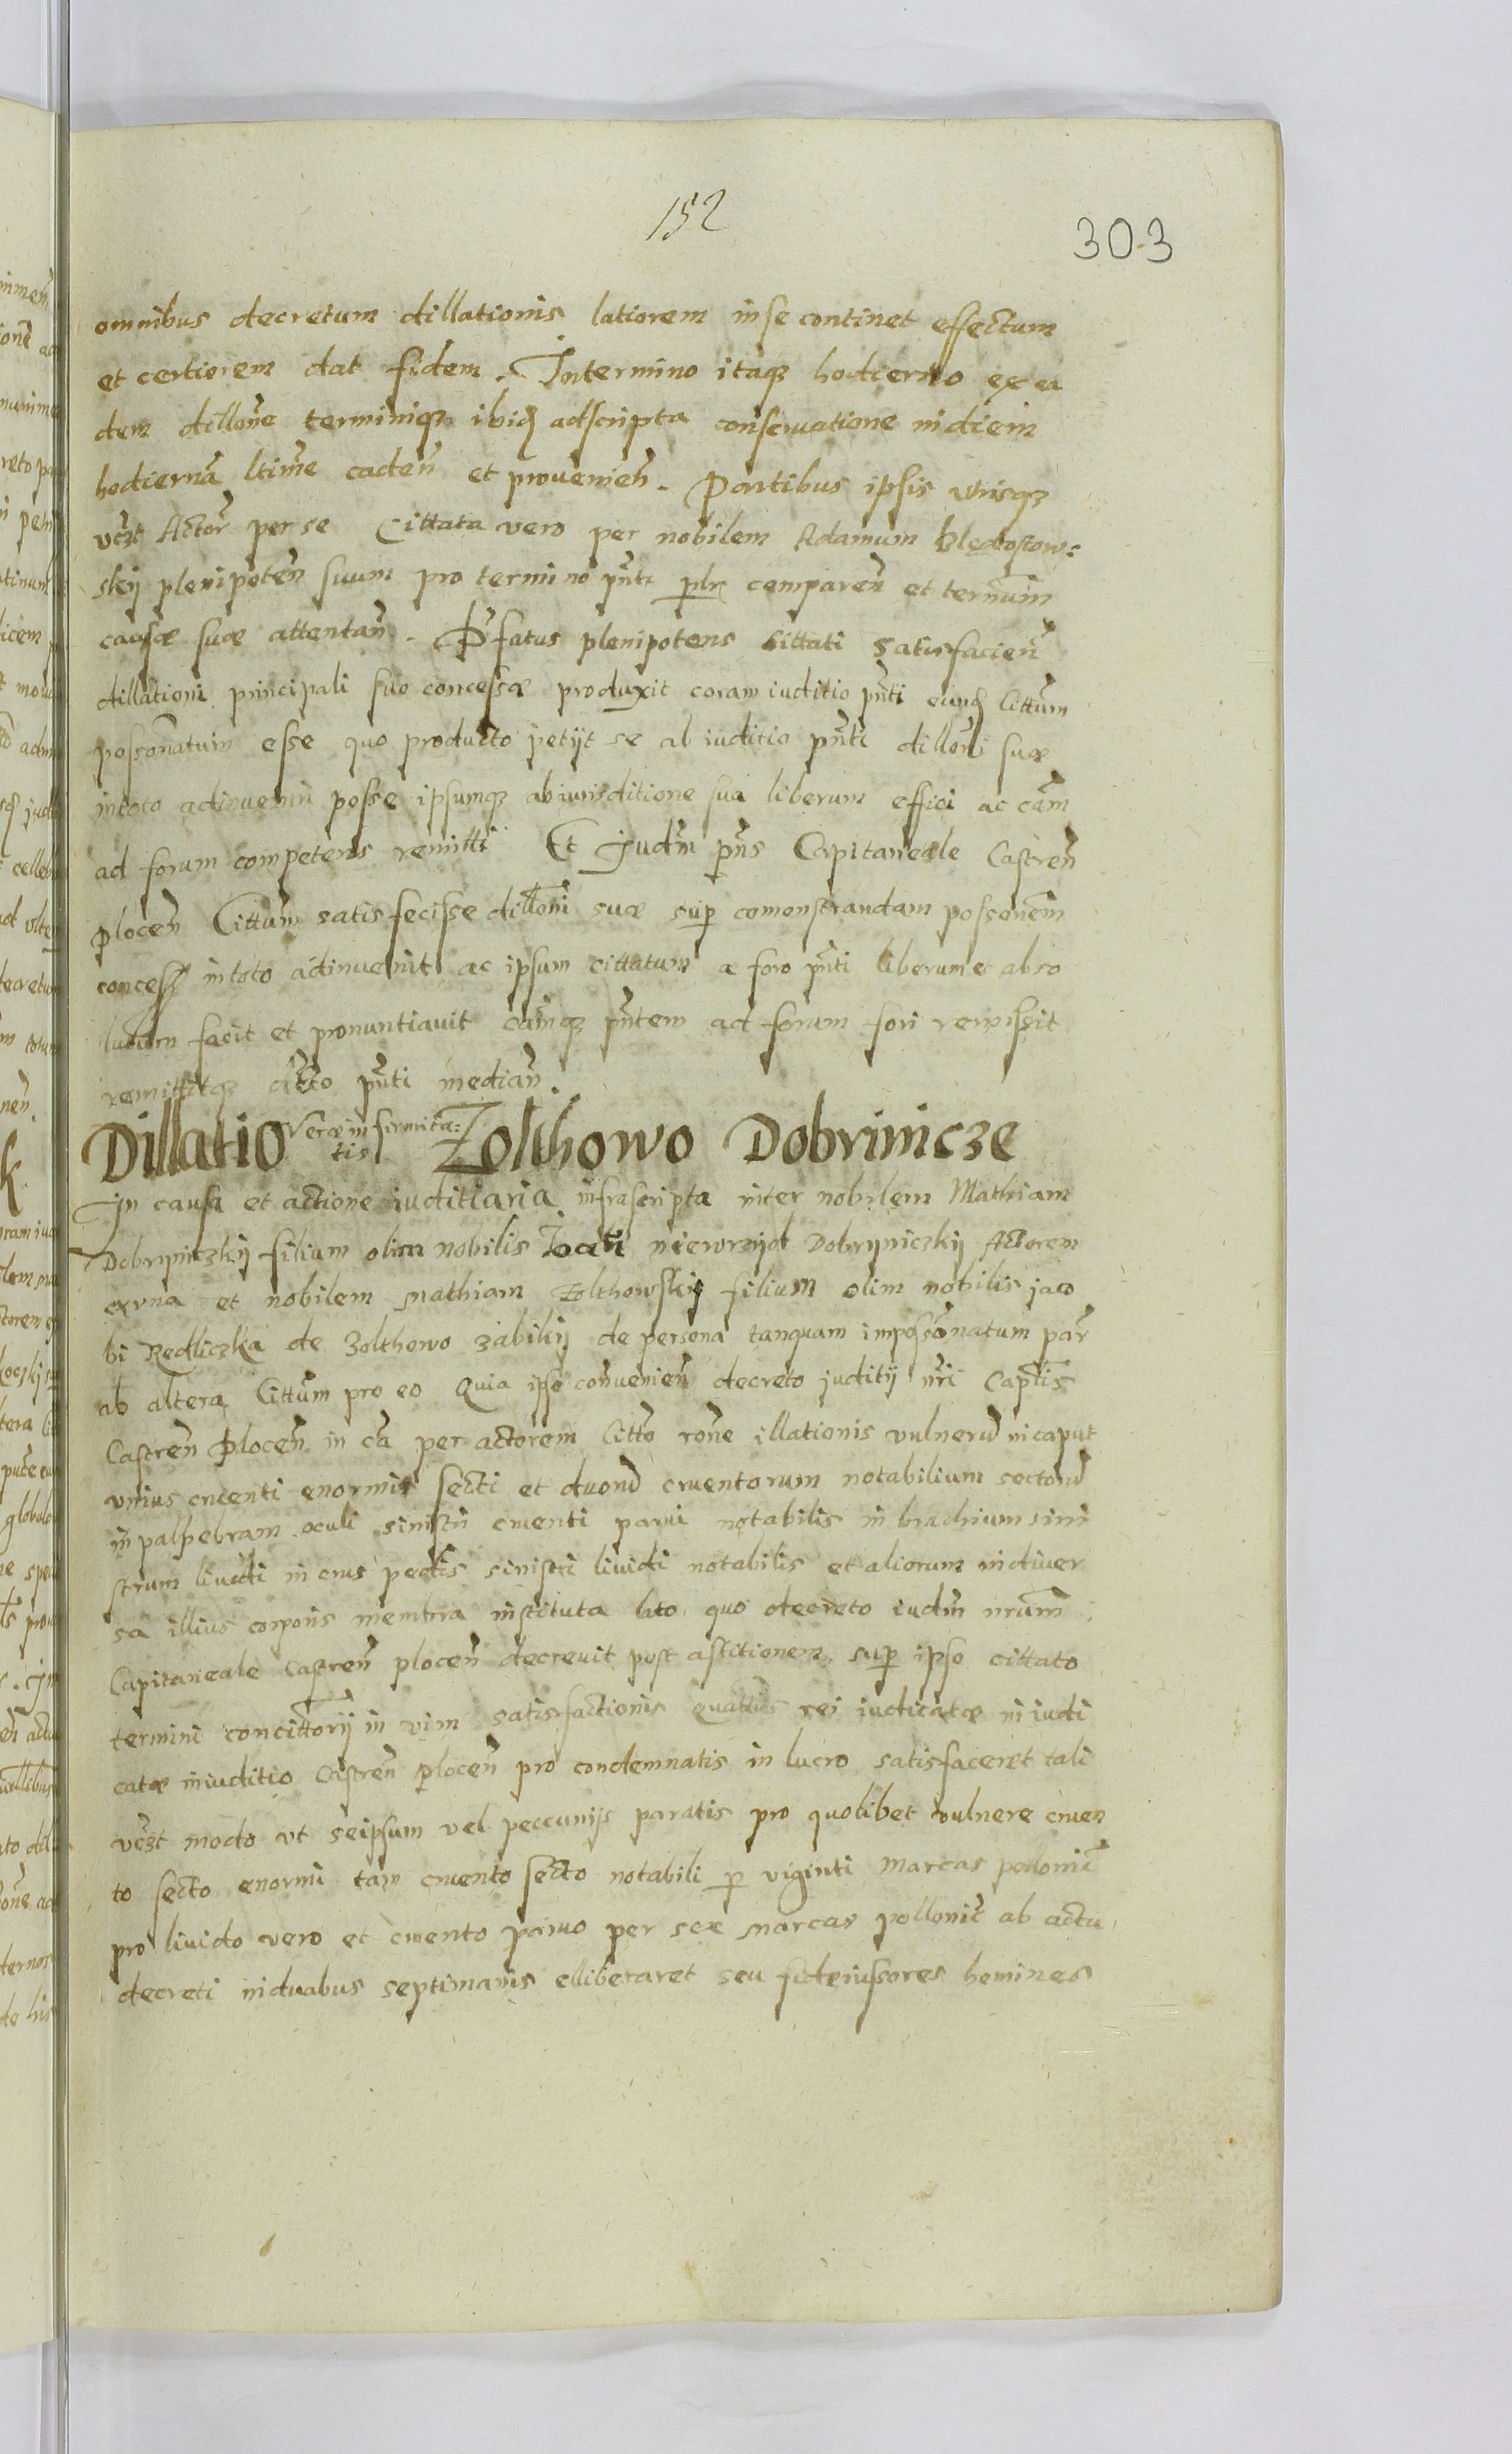 152
303
omnibus decretum dillationis latiorem in se continet effectum
et certiorem dat fidem. In termino itaqz hodierno ex ea
dem dillone terminiqz ibid adscripta conservatione in diem
hodierna ltime caden et provenien. Partibus ipsis utrisqz
vczt Actor per se Cittata vero per nobilem Adamum Blędostow:
skij plenipoten suum pro termino pnti plr comparen et termum
causæ suæ attentan. Pfatus plenipotens Cittati satisfacien
dillationi principali suo concessæ produxit coram iuditio pnti eund Cittum
possonatum esse quo producto petijt se ab iuditio pnti dilloni suæ
in toto adinveniri posse ipsumqz ab iurisditione sua liberum effici ac cam
ad forum competens remitti Et Judm pns Capitaneale Castren
plocen Cittum satisfecisse dilloni suæ sup comonstrandam possonem
concess in toto adinvenit ac ipsum cittatum a foro pnti liberum et abso
lutum facit et pronuntiavit camqz pntem ad forum fori remissit
remittitqz dtto pnti median.
Dillatio Veræ infirmita:
tis Zolthowo Dobrinicze
In causa et actione iuditiaria infrascripta inter nobilem Mathiam
Dobrijniczkij filium olim nobilis niewrzijd Dobrijniczkij Actorem
ex una et nobilem Mathiam Zolthowskij filium olim nobilis jaco
bi Redliczka de Zolthowo zabikij de persona tanquam impossonatum par
ab altera Cittum pro eo Quia ipse convenien decreto juditij nri Captis
Castren Plocen in ca per actorem Citto rone illationis vulneru in caput
unius cruenti enormis secti et duoru cruentorum notabilium sectoru
in palpebram oculi sinistri cruenti parvi notabilis in brachium sini
strum lividi in crus pedis sinistri lividi notabilis et aliorum in diver
sa illius corporis membra instituta lato quo decreto iudm nrum
Capitaneale Castren plocen decrevit post astitionem sup ipso cittato
termini concittorij in vim satisfactionis quattus rei iudicatæ in iudi
catæ in iuditio Castren Plocen pro condemnatis in lucro satisfaceret tali
vczt modo ut seipsum vel peccunijs paratis pro quolibet vulnere cruen
to secto enormi tam cruento secto notabili p viginti Marcas pollonic
pro livido vero et cruento parvo per sex Marcas pollonic ab actu
decreti in duabus septimanis elliberaret seu fideiussores homines